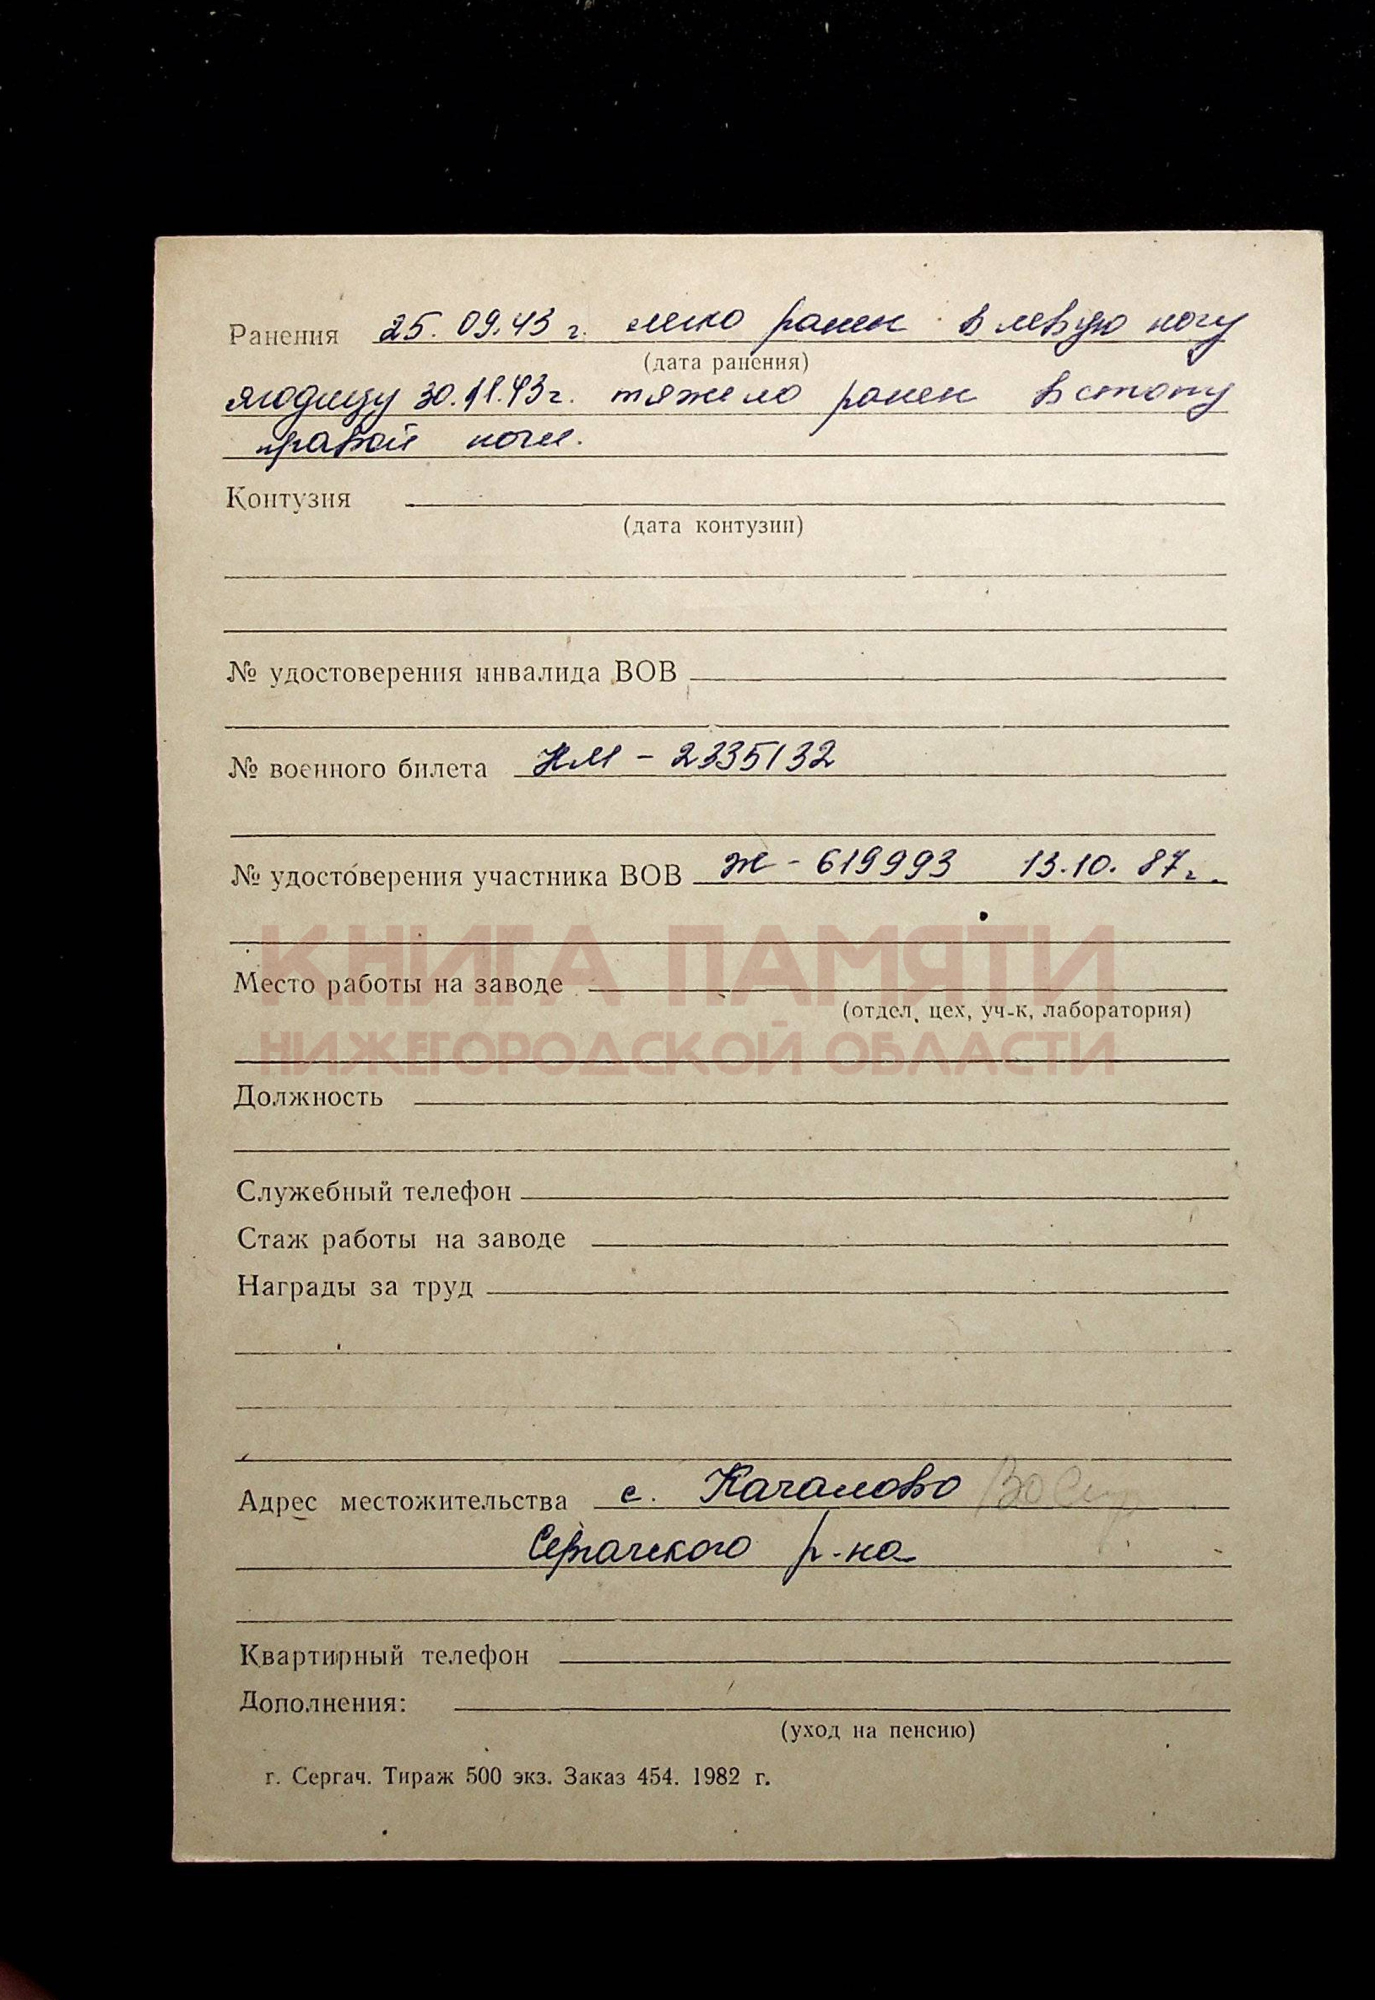 Ранения 25.09.43 г. легко ранен в левую ногу
(дата ранения)
ягодицу 30.11.43г. тяжело ранен в стопу
правой ноги.
Контузия
(дата контузии)
№ удостоверения инвалида ВОВ
№ военного билета НМ - 2335132
№ удостоверения участника ВОВ Ж - 619993 13.10.87г.
КНИГА ПАМЯТИ
Место работы на заводе
(отдел, цех, уч-к, лаборатория)
НИЖЕГОРОДСКОЙ ОБЛАСТИ
Должность
Служебный телефон
Стаж работы на заводе
Награды за труд
Адрес местожительства с. Качалово
Сергачского р-на
Квартирный телефон
Дополнения:
(уход на пенсию)
г. Сергач. Тираж 500 экз. Заказ 454. 1982 г.